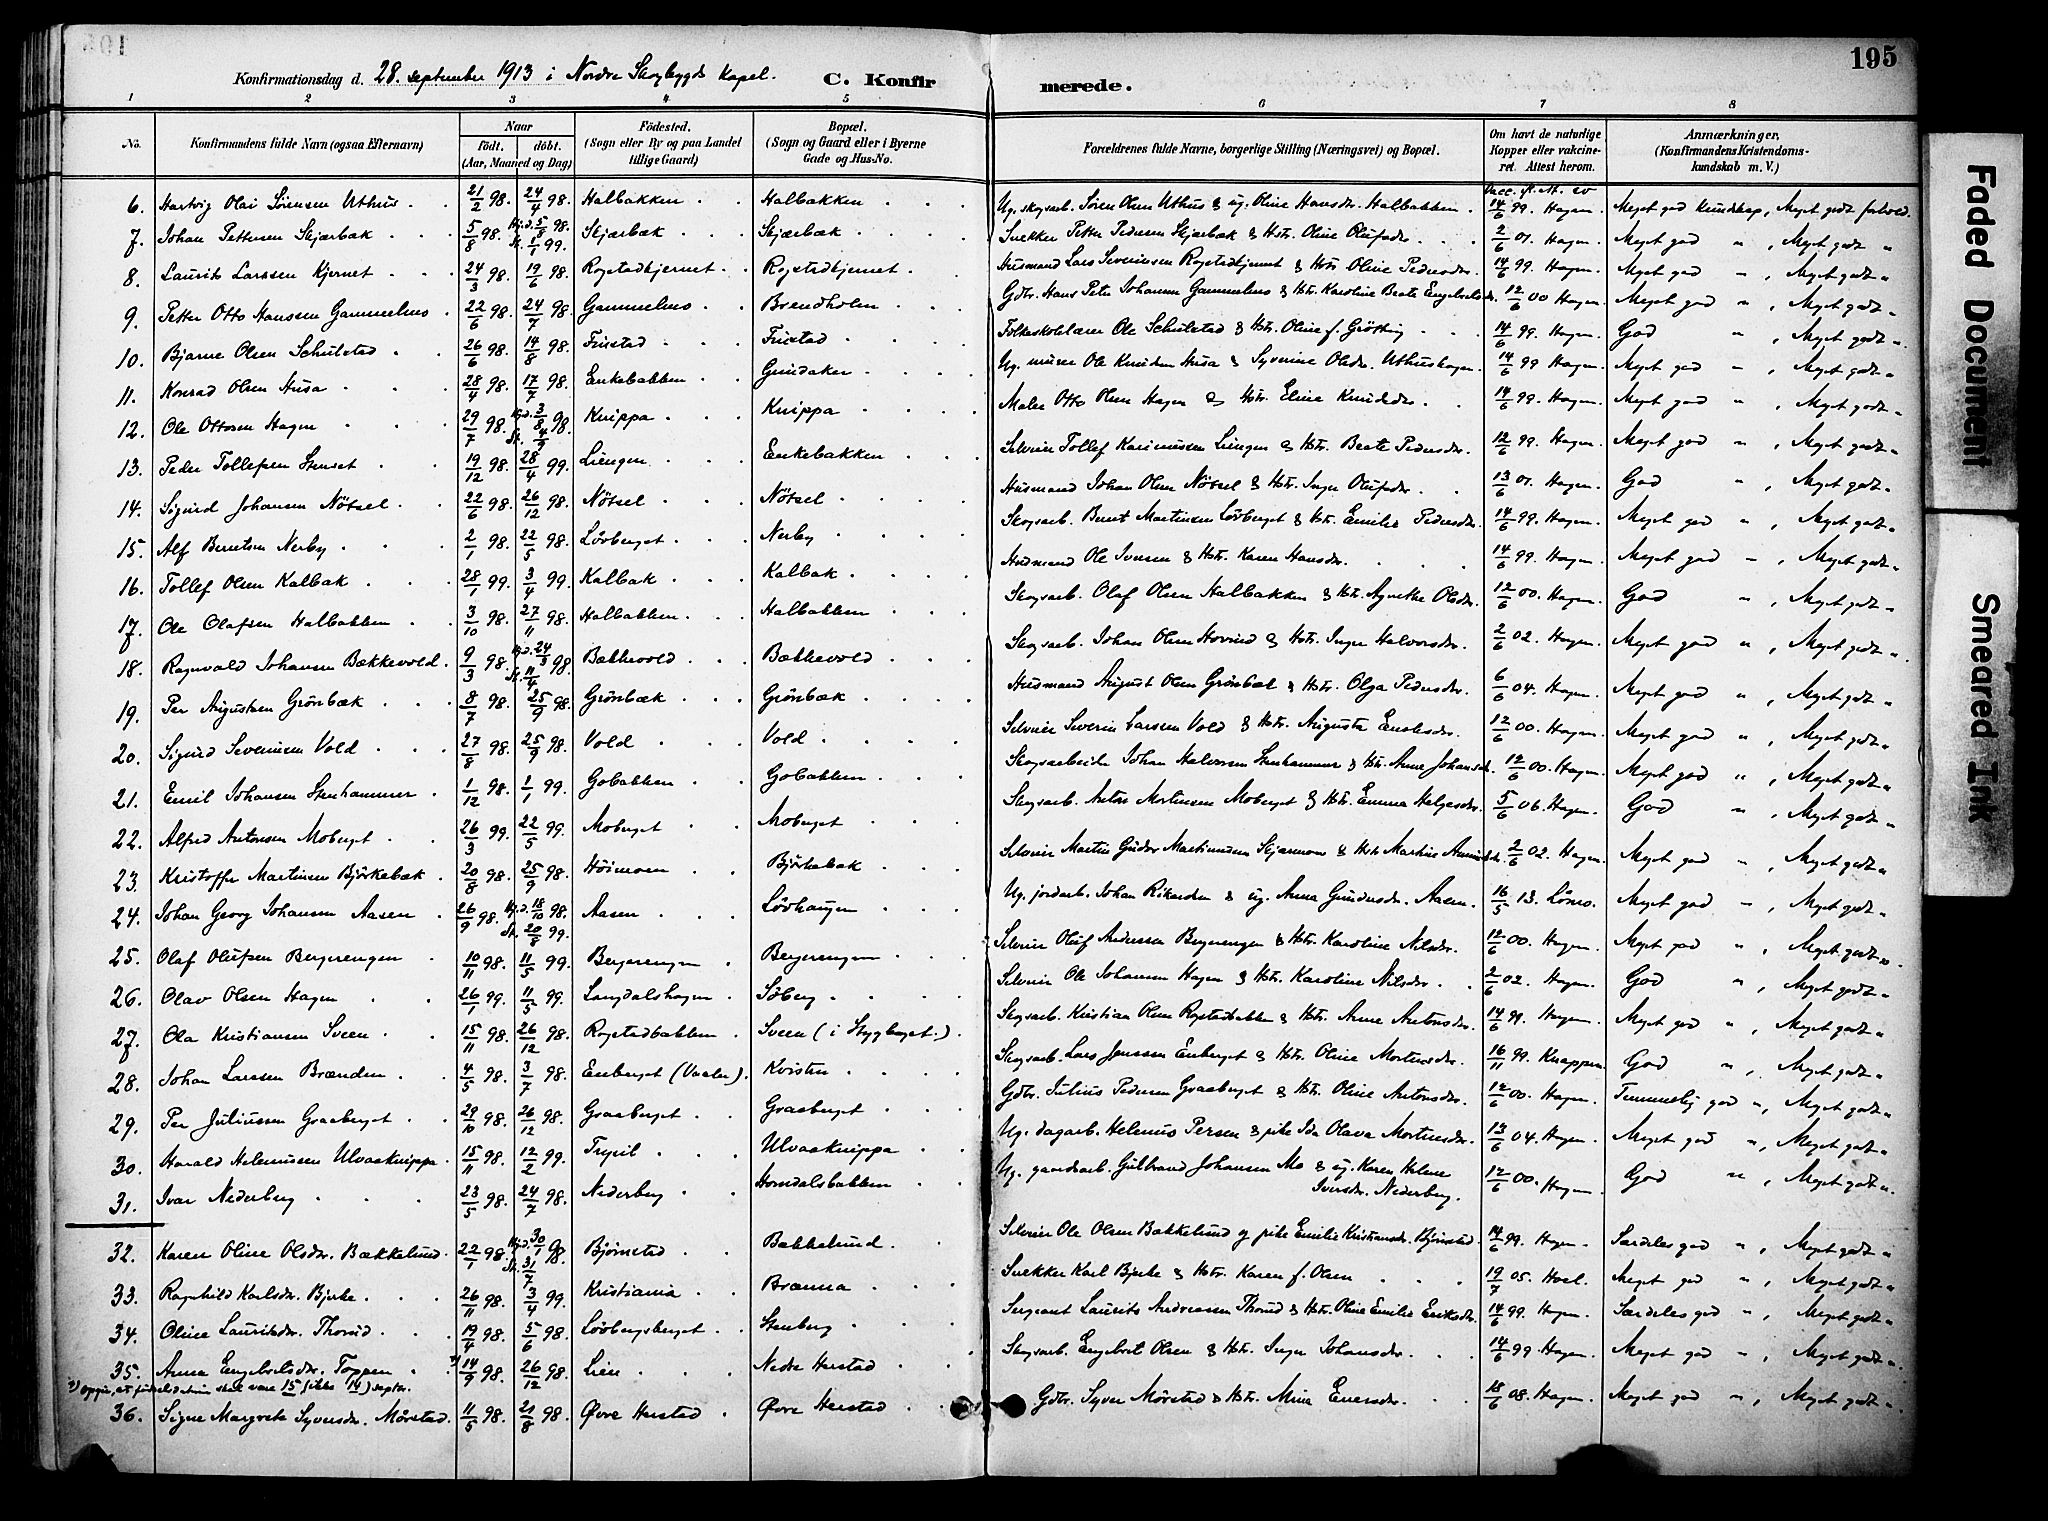 195
Konfirmationsdag d. 28. september 1913 i Nordre Skogbygds Kapel. C. Konfirmerede.
1 2 3 4 5 6 7 8
No. Konfirmandens fulde Navn (ogsaa Efternavn) Naar födt. döbt. (Aar, Maaned og Dag) Födested. (Sogn eller By og paa Landet tillige Gaard) Bopæl. (Sogn og Gaard eller i Byerne Gade og Hus-No. Forældrenes fulde Navne, borgerlige Stilling (Næringsvei) og Bopæl. Om havt de naturlige Kopper eller vakcineret. Attest herom. Anmærkninger. (Konfirmandens Kristendomskundskab m. V.)
6. Hartvig Olai Sörensen Uthus 21/2 98. 24/4 98. Halbakken Halbakken Ug. skogsarb. Sören Olsen Uthus & ug. Oline Hansdr. Halbakken. Vacc. 14/6 99. Hagen. Meget god kundskap, Meget godt forhold.
7. Johan Pettersen Skjærbæk 5/8 98. Hjd. 5/8 98. St. 1/1 99. Skjærbæk Skjærbæk Snekker Petter Pedersen Skjærbæk & Hstr. Oline Olufsdr. 2/6 01. Hagen. Meget god " , Meget godt "
8. Laurits Larssen Kjernet 24/3 98. 19/6 98. Rogstadkjernet Rogstadkjernet Husmand Lars Severinsen Rogstadkjernet & Hstr. Oline Pedersdr. 14/6 99. Hagen. Meget god " , Meget godt "
9. Petter Otto Hanssen Gammelmo 22/6 98. 24/7 98. Gammelmo Brendholen Gdbr. Hans Peter Johansen Gammelmo & Hstr. Karoline Beate Engebretsdr. 12/6 00 Hagen. Meget god " , Meget godt "
10. Bjarne Olsen Schulstad 26/6 98. 14/8 98. Fuxtad Fuxtad Folkeskolelærer Ole Schulstad & Hstr. Oline f. Grötting 14/6 99. Hagen. God " , Meget godt "
11. Konrad Olsen Husa 28/4 98. 17/7 98. Enkebakken Grindaker Ug. murer Ole Knudsen Husa & Syverine Olsdr. Uthushagen. 14/6 99 Hagen. Meget god " , Meget godt "
12. Ole Ottosen Hagen 29/7 98. Hjd. 3/8 98. St. 4/9 Knippa Knippa Maler Otto Olsen Hagen & Hstr. Eline Knudsdr. 14/6 99. Hagen. Meget god " , Meget godt "
13. Peder Tollefsen Stenset 19/12 98. 28/4 99. Liengen Enkebakken Selveier Tollef Karinusen Liengen & Hstr. Beate Pedersdr. 12/6 99. Hagen. Meget god " , Meget godt "
14. Sigurd Johansen Nötsel 22/6 98. 26/12 98. Nötsel Nötsel Husmand Johan Olsen Nötsel & Hstr. Inger Olufsdr. 13/6 01. Hagen. God " , Meget godt "
15. Alf Berntsen Nerby 2/1 98. 22/5 98. Lövberget Nerby Skogsarb. Bernt Martinsen Lövberget & Hstr. Emilie Pedersdr. 14/6 99. Hagen. Meget god " , Meget godt "
16. Tollef Olsen Kalbak 28/1 99. 3/4 99. Kalbak Kalbak Husmand Ole Iversen & Hstr. Karen Hansdr. 14/6 99. Hagen. Meget god " , Meget godt "
17. Ole Olafsen Halbakken 3/10 98. 27/11 98. Halbakken Halbakken Skogsarb. Olaf Olsen Halbakken & Hstr. Agnethe Olsdr. 12/6 00. Hagen. God " , Meget godt "
18. Ragnvald Johansen Bækkevold 9/3 98. Hjd. 24/3 98. St. 11/4 Bækkevold Bækkevold Skogsarb. Johan Olsen Hovrud & Hstr. Inger Halvorsdr. 2/6 02. Hagen. Meget god " , Meget godt "
19. Per Augustsen Grönbæk 8/7 98. 25/9 98. Grönbæk Grönbæk Husmand August Olsen Grönbæk & Hstr. Olga Pedersdr. 6/6 04. Hagen. Meget god " , Meget godt "
20. Sigurd Severinsen Vold 27/8 98. 25/9 98. Vold Vold Selveier Severin Larsen Vold & Hstr. Augusta 12/6 00. Hagen. Meget god " , Meget godt "
21. Emil Johansen Stenhammer 1/12 98. 1/1 99. Gobakken Gobakken Skogsarbeider Johan Halvorsen Stenhammer & Hstr. Anne Johansdr. 12/6 00. Hagen. Meget god " , Meget godt "
22. Alfred Antonsen Moberget 26/3 99. 22/5 99. Moberget Moberget Skogsarb. Anton Mortensen Moberget & Hstr. Emma Helgesdr. 5/6 06. Hagen. God " , Meget godt "
23. Kristoffer Martinsen Björkebæk 20/8 98. 25/9 98. Höimoen Björkebæk Selveier Martin Gudor Martinusen Skjærmoen & Hstr. Martine 2/6 02. Hagen. Meget god " , Meget godt "
24. Johan Georg Johansen Aasen 26/9 98. Hjd. 18/10 98. St. 20/8 99. Aasen Lövhaugen Ug. jordarb. Johan Rikardsen & ug. Anna Gundersdr. Aasen. 16/5 13. Lömo. Meget god " , Meget godt "
25. Olaf Olufsen Bergerengen 10/11 98. 11/5 99. Bergerengen Bergerengen Selveier Oluf Andersen Bergerengen & Hstr. Karoline Nilsdr. 12/6 00. Hagen. Meget god " , Meget godt "
26. Olav Olsen Hagen 26/1 99. 11/5 99. Langdalshagen Söberg Selveier Ole Johansen Hagen & Hstr. Karoline Nilsdr. 2/6 02. Hagen. God " , Meget godt "
27. Ola Kristiansen Sveen 15/11 98. 26/12 98. Rogstadbakken Sveen (i Stygberget.) Skogsarb. Kristian Olsen Rogstadbakken & Hstr. Anne Antonsdr. 14/6 99. Hagen. Meget god " , Meget godt "
28. Johan Larssen Brænden 4/5 98. 3/7 98. Enberget (Vaaler) Kvisten Skogsarb. Lars Jenssen Enberget & Hstr. Oline Mortensdr. 16/11 99. Knappen. God " , Meget godt "
29. Per Juliussen Graaberget 29/10 98. 26/12 98. Graaberget Graaberget Gdbr. Julius Pedersen Graaberget & Hstr. Oline Antonsdr. 12/6 00. Hagen. Temmelig god " , Meget godt "
30. Harald Heleniussen Ulvaaknippa 15/11 98. 12/2 99. Trysil Ulvaaknippa Ug. dagarb. Helenius Persen & pike Ida Olava Mortensdr. 13/6 04. Hagen. Meget god " , Meget godt "
31. Ivar Nederberg 23/5 98. 24/7 98. Nederberg Homdalsbakken Ug. gaardsarb. Gulbrand Johansen Mo & ug. Karen Helene Iversdr. Nederberg. 12/6 00. Hagen. God " , Meget godt "
32. Karen Oline Olsdr. Bækkelund 22/1 98. Hjd. 30/1 98. St. 31/7 Björnstad Bækkelund Selveier Ole Olsen Bækkelund og pike Emilie Kristiansdr. Björnstad. 14/6 99. Hagen. Særdeles god " , Meget godt "
33. Ragnhild Karlsdr. Bjerke 26/11 98. 3/4 99. Kristiania Brænna Snekker Karl Bjerke & Hstr. Karen f. Olsen 19/7 05. Hoel. Meget god " , Meget godt "
34. Oline Lauritsdr. Thorud 19/4 98. 5/6 98. Lövbergsberget Stenberg Sergeant Laurits Andreassen Thorud & Hstr. Oline Emilie Eriksdr. 14/6 99. Hagen. Særdeles god " , Meget godt "
35. Anna Engebretsdr. Toppen *) 14/9 98. 26/12 98. Lien Nedre Herstad Skogsarb. Engebret Olsen & Hstr. Inger Johansdr. 14/6 99 Hagen. Meget god " , Meget godt "
*) Opgir, at födselsdatoen skal være 15 (ikke 14) septbr.
36. Signe Margrete Syversdr. Mörstad. 11/5 98. 21/8 98. Øvre Herstad Øvre Herstad Gdbr. Syver Mörstad & Hstr. Mina Evensdr. 18/6 08. Hagen. Meget god " , Meget godt "
Faded Document
Smeared Ink